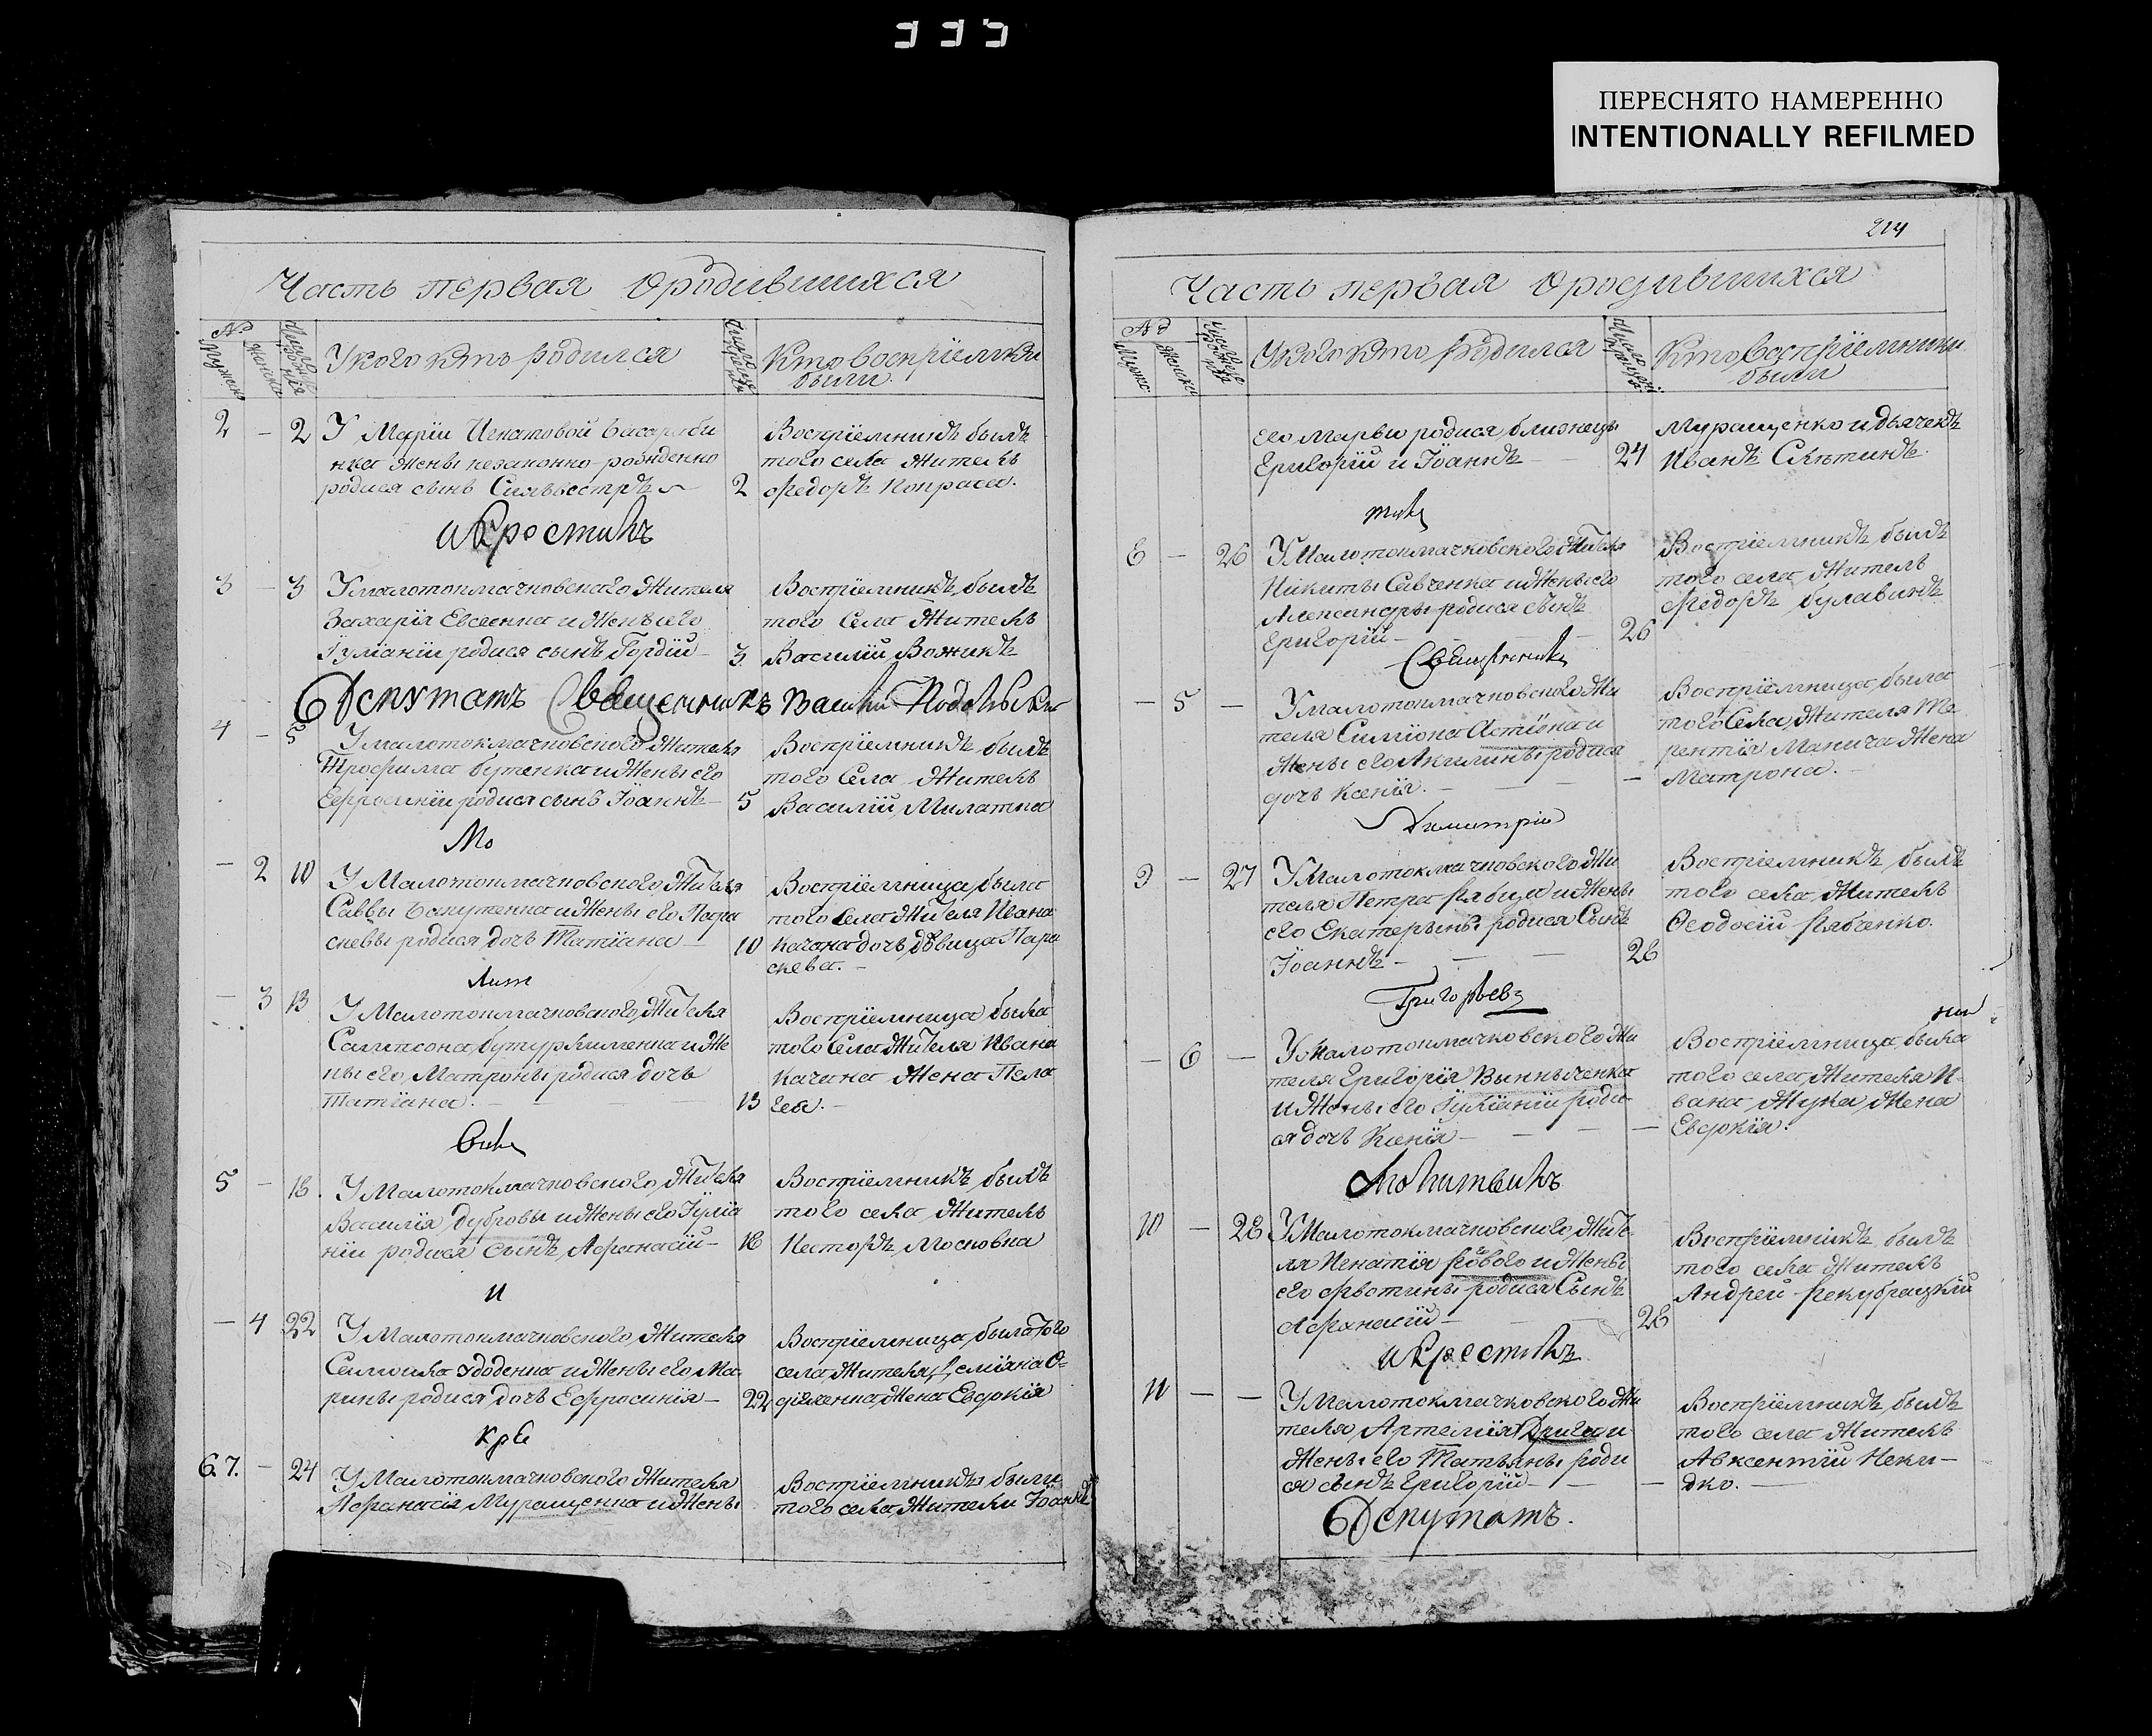 335
ПЕРЕСНЯТО НАМЕРЕННО
INTENTIONALLY REFILMED
Часть первая о родившихся
№
Мужеск
Женска
У кого кто родился
Кто восприемники
были
2 - 2 У Марїи Игнатовой
нка жены незаконно рожденно
родися сынъ Силвестръ 2
Воспрїемникъ былъ
того села житель
Федоръ Капраса.
и крестилъ
3 - 3 У малотокмачковскаго жителя
Захарія Евсеенка и жены его
Іуліаніи родися сынъ Гордій 3
Воспріемникъ былъ
того села житель
Василій Вожикъ
Депутатъ Священникъ Василий Подольский
4 - 5 У малотокмачковского жителя
Трофима Бутенка и жены его
Ефросиніи родися сынъ Іоаннъ 5
Воспріемникъ былъ
того села житель
Василій Милатка
Мо
- 2 10 У Малотокмачковского жителя
Саввы и жены его Пара
скевы родися дочь Татіана 10
Воспріемница была
того села жителя Ивана
Качана дочь дѣвица Пара
скева.
лит
- 3 13 У Малотокмачковского жителя
Сампсона и же
ны его Матроны родися дочь
Татіана. 13
Воспріемница была
того села жителя Ивана
Качана жена Пела
гея.
вилъ
5 - 18. У Малотокмачковского жителя
Василія Дубровы и жены его Іуліа
ніи родися сынъ Афанасій 18
Воспріемникъ былъ
того села житель
Несторъ Московка
и
- 4 22 У Малотокмачковского жителя
Самойла Удоденка и жены его Ма
рины родися дочь Ефросинія 22
Воспріемница была того
села жителя
жена Евдокія
кре
6.7. - 24 У Малотокмачковского жителя
Афанасія Муращенка и жены
Воспріемники были
того села жители Іоаннъ
214
Часть первая о родившихся
№
Мужс
Женски
У кого кто родился
Кто воспріемники
были
его Марвы родися близнецы
Григорій и Іоаннъ 24
Муращенко и дьячекъ
Иванъ
тилъ
8 - 26 У Малотокмачковского жителя
Никиты Савченка и жены его
Александры родися сынъ
Григорій 26
Воспріемникъ былъ
того села житель
Федоръ Булавинъ
Священникъ
- 5 - У малотокмачковского жи
теля Симіона и
жены его Акилины родися
дочь Ксенія.
Воспріемница была
того села жителя Те
рентія Манича жена
Матрона.
Димитрій
9 - 27 У Малотокмачковского жи
теля Петра Рябца и жены
его Екатерины родися сынъ
Іоаннъ 28
Воспріемникъ былъ
того села житель
Феодосій Рябченко.
Григорьевъ
- 6 - У Малотокмачковского жи
теля Григорія Винниченка
и жены его Іуліаніи роди
ся дочь Ксенія
Воспріемница была
того села жителя И
вана Жука жена
Евдокія.
Молитвилъ
10 - 28 У Малотокмачковского жите
ля Игнатія Рового и жены
его Фвотины родися сынъ
Афанасій 28
Воспріемникъ былъ
того села житель
Андрей
и крестилъ
11 - - У Малотокмачковского жи
теля Артемія и
жены его Татьяны роди
ся сынъ Григорій
Воспріемникъ былъ
того села житель
Авксентій Неки-
дко.
Депутатъ.